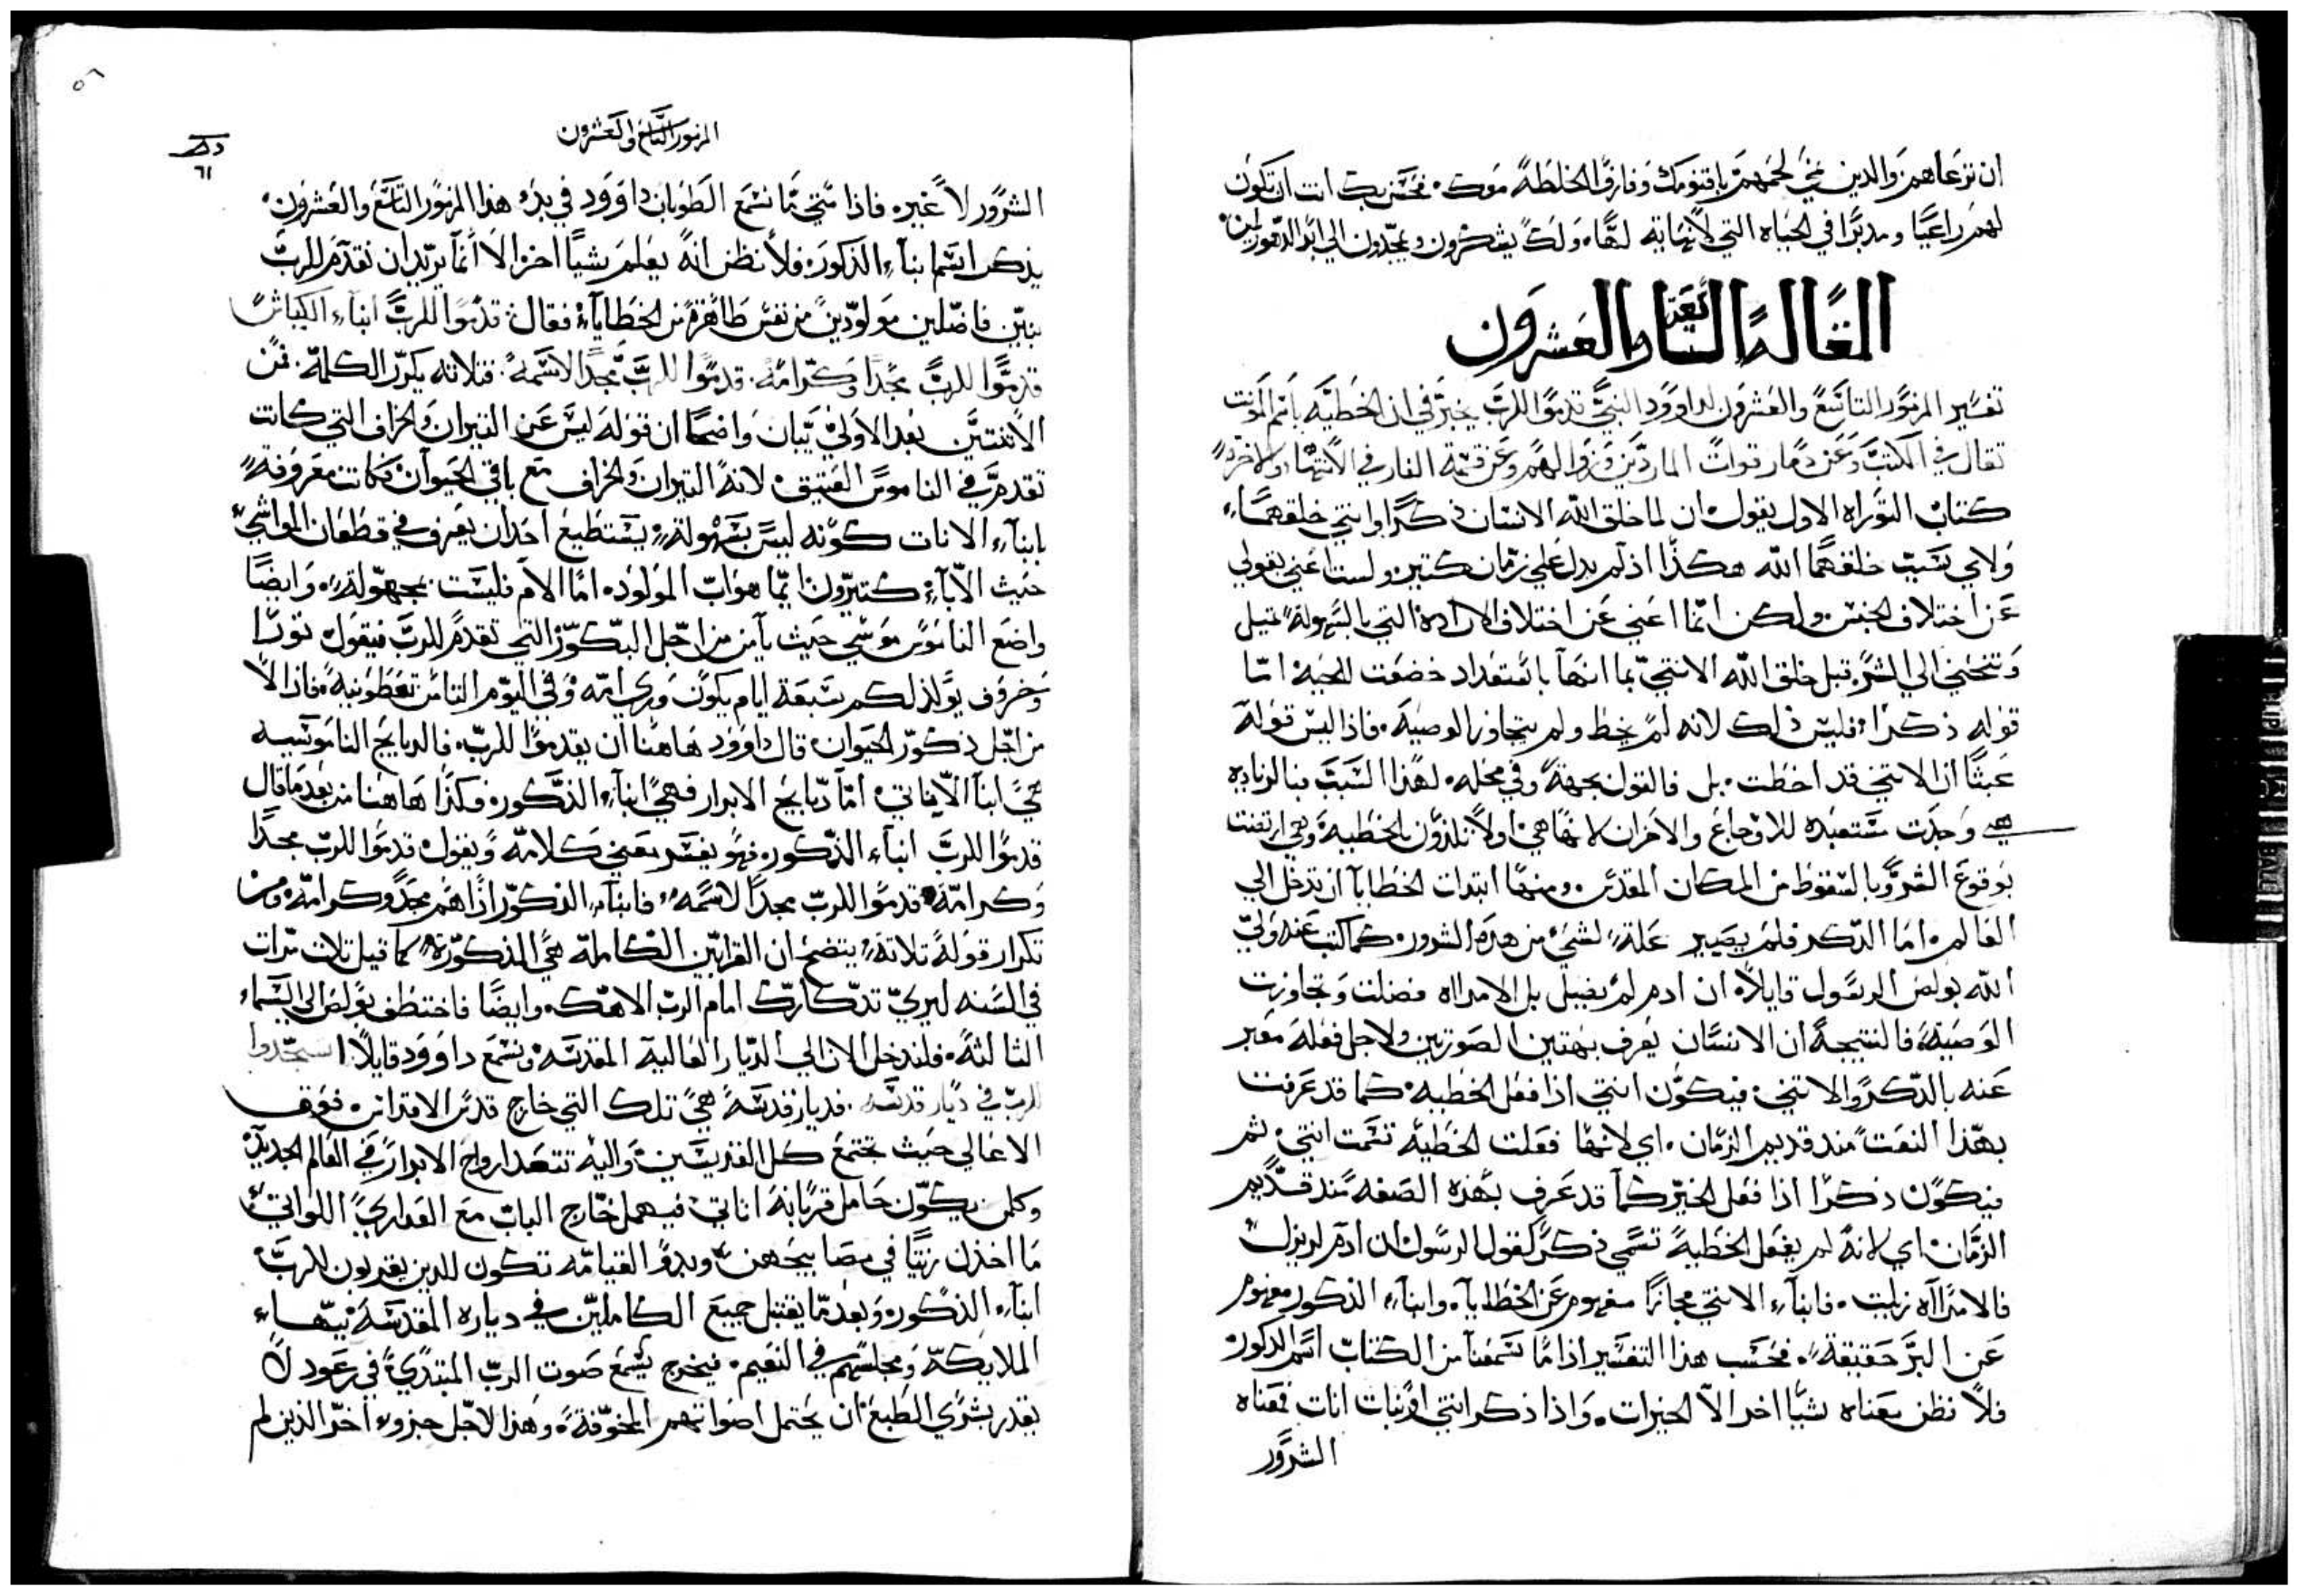 ان ترعاهم والدين هي لحمهم باقنومك وفارق الخلطة موتك فحسن بك انت ان تكون
لهم راعيًا ومدبرًا في الحياه التي لا نهايه لها ولك يشكرون ويمجدون الى ابد الدهور امين
المقالة التاسعة والعشرون
تفسير المزمور التاسع والعشرون لداوود النبي قدموا للرب يخبر في ان الخطيه باسم المونت
تقال في الكتب وعن دمار قوات الماردين وزوالهم وعن قسمة النار في الانتهاء والاخره
كتاب التوراه الاول يقول ان لما خلق الله الانسان ذكرًا وانتي خلقهما
ولاي سبب خلقهما الله هكذا اذ لم يدل علي زمان كتير ولست اعني بقولي
عن اختلاف الجنس ولكن انما اعني عن اختلاف الاراده التي بالسهولة تميل
وتنحني الي الشر قبل خلق الله الانتي بما انها باستعداد خضعت للحيه اما
قوله ذكرًا فليس ذلك لانه لم يخط ولم يتجاوز الوصيه فاذًا ليس قوله
عبثًا ان الانتي قد اخطت بل فالقول بجهة وفي محله لهذا السبب بنا الزياده
هي وجدت مستعبده للاوجاع والاحزان لانها هي اولا تلدون بالخطية وهي ارتضت
بوقوع الشرو بالسقوط من المكان المقدس ومنها ابتدات الخطايا ان تدخل الي
العالم اما الذكر فلم يصير علة لشي من هذه الشرور كما كتب عنه ولي
الله بولص الرسول قايلا ان ادم لم يضل بل الامراه فضلت وتجاوزت
الوصية فالنتيجة ان الانسان يعرف بهتين الصورتين ولاجل فعله معبر
عنه بالذكر والانتي فيكون انتي اذا فعل الخطيه كما قد عرفت
بهذا النعت مند قديم الزمان اي لانها فعلت الخطيه تسمت انتي ثم
فيكون ذكرًا اذا فعل الخير كما قد عرف بهذه الصفه مند قديم
الزمان اي لانه لم يفعل الخطية تسمي ذكر لقول الرسول ان ادم لم يزل
فالامراه زلت فابناء الانتي مجازًا مفهوم عن الخطايا وابناء الذكور مفهوم
عن البر حقيقة فحسب هذا التفسير اذا ما سمعنا من الكتاب اسم الذكور
فلا نظن معناه شيًا اخر الا الخيرات واذا ذكر انتي او بنات انات فمعناه
الشرور
٥٨
المزمور التاسع والعشرون
٦١
الشرور لا غير فاذا متي ما نسمع الطوبان داوود في بدء هذا المزمور التاسع والعشرون
يذكر اسم ابناء الذكور فلا نظن انه يعلم شيًا اخر الا انما يريد ان نقدم للرب
بنين فاضلين مولودين من نفس طاهرة من الخطايا فقال قدموا للرب ابناء الكباش
قدموا للرب مجدًا وكرامة قدموا للرب مجدًا لاسمه فتلاته يكرر الكلمة فمن
الاثنتين بعد الاولي يبان واضحًا ان قوله ليس عن التيران والخراف التي كانت
تقدم في الناموس العتيق لانه التيران والخراف مع باقي الحيوان فكانت معروفه
بابناء الانات كونه ليس بسهولة يستطيع احدًا ان يعرف في قطعان المواشي
حيث الاباء كتيرون ايما هو اب المولود اما الام فليست بمجهولة وايضًا
واضع الناموس موسي حيث يامر من اجل البكور التي تقدم للرب فيقول تورًا
وخروف يولد لكم سبعة ايام يكون وري امه وفي اليوم التامن تعطونيه فاذًا لا
من اجل ذكور الحيوان قال داوود هاهنا ان يقدموا للرب فالدبايح الناموسيه
هي ابنا الاناتي اما دبايح الابرار فهي ابناء الذكور فكذا هاهنا من بعد ما قال
قدموا للرب ابناء الذكور فهو يفسر معني كلامه ويقول قدموا للرب مجدًا
وكرامة قدموا للرب مجدًا لاسمه فابناء الذكور اذًا هم مجد وكرامه ومن
تكرار قوله تلاتة يتضح ان القرابين الكاملة هي المذكورة كما قيل تلات مرات
في السنه ليري تدكارك امام الرب الاهك وايضًا فاختطف بولص الي السماء
الثالثة فلندخل الان الي الديار العالية المقدسة ونسمع داوود قايلا اسجدوا
للرب في ديار قدسه فديار قدسة هي تلك التي خارج قدس الاقداس فوق
الاعالي حيث تجتمع كل القديسين واليه تتصعد ارواح الابرار في العالم الجديد
وكلمن يكون حامل قربانه اناتي فيهمل خارج الباب مع العداري اللواتي
ما اخذن زيتًا في مصابيحهن وبدو القيامه تكون للدين يقدمون للرب
ابناء الذكور وبعد ما يقتبل جميع الكاملين في دياره المقدسة ببهاء
الملايكة ومجلسهم في النعيم فيخرج يسمع صوت الرب المبتدي في رعود لا
يقدر بشري الطبع ان يحتمل اصواتهم المخوفة وهذا لاجل جزو اخر الذين لم